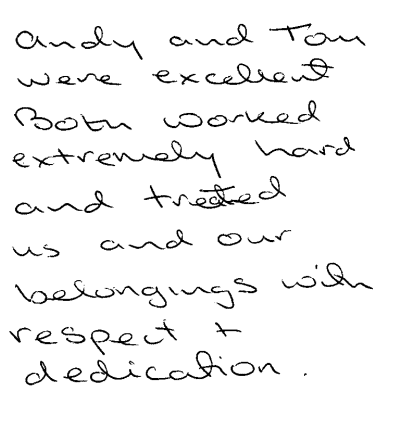 Andy and Tom
were excellent
Both worked
extremely hard
and treated
us and our
belongings with
respect +
dedication.